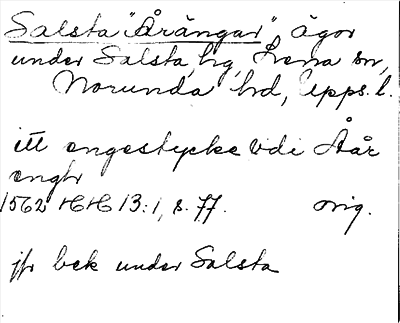 Salsta "Årängar" ägor
under Salsta, hg, Lena sn,
Norunda hd, Upps. l.
itt engestycke vdi Åår
engr
1562 HH 13:1, s. 77. orig.
jfr bek under Salsta